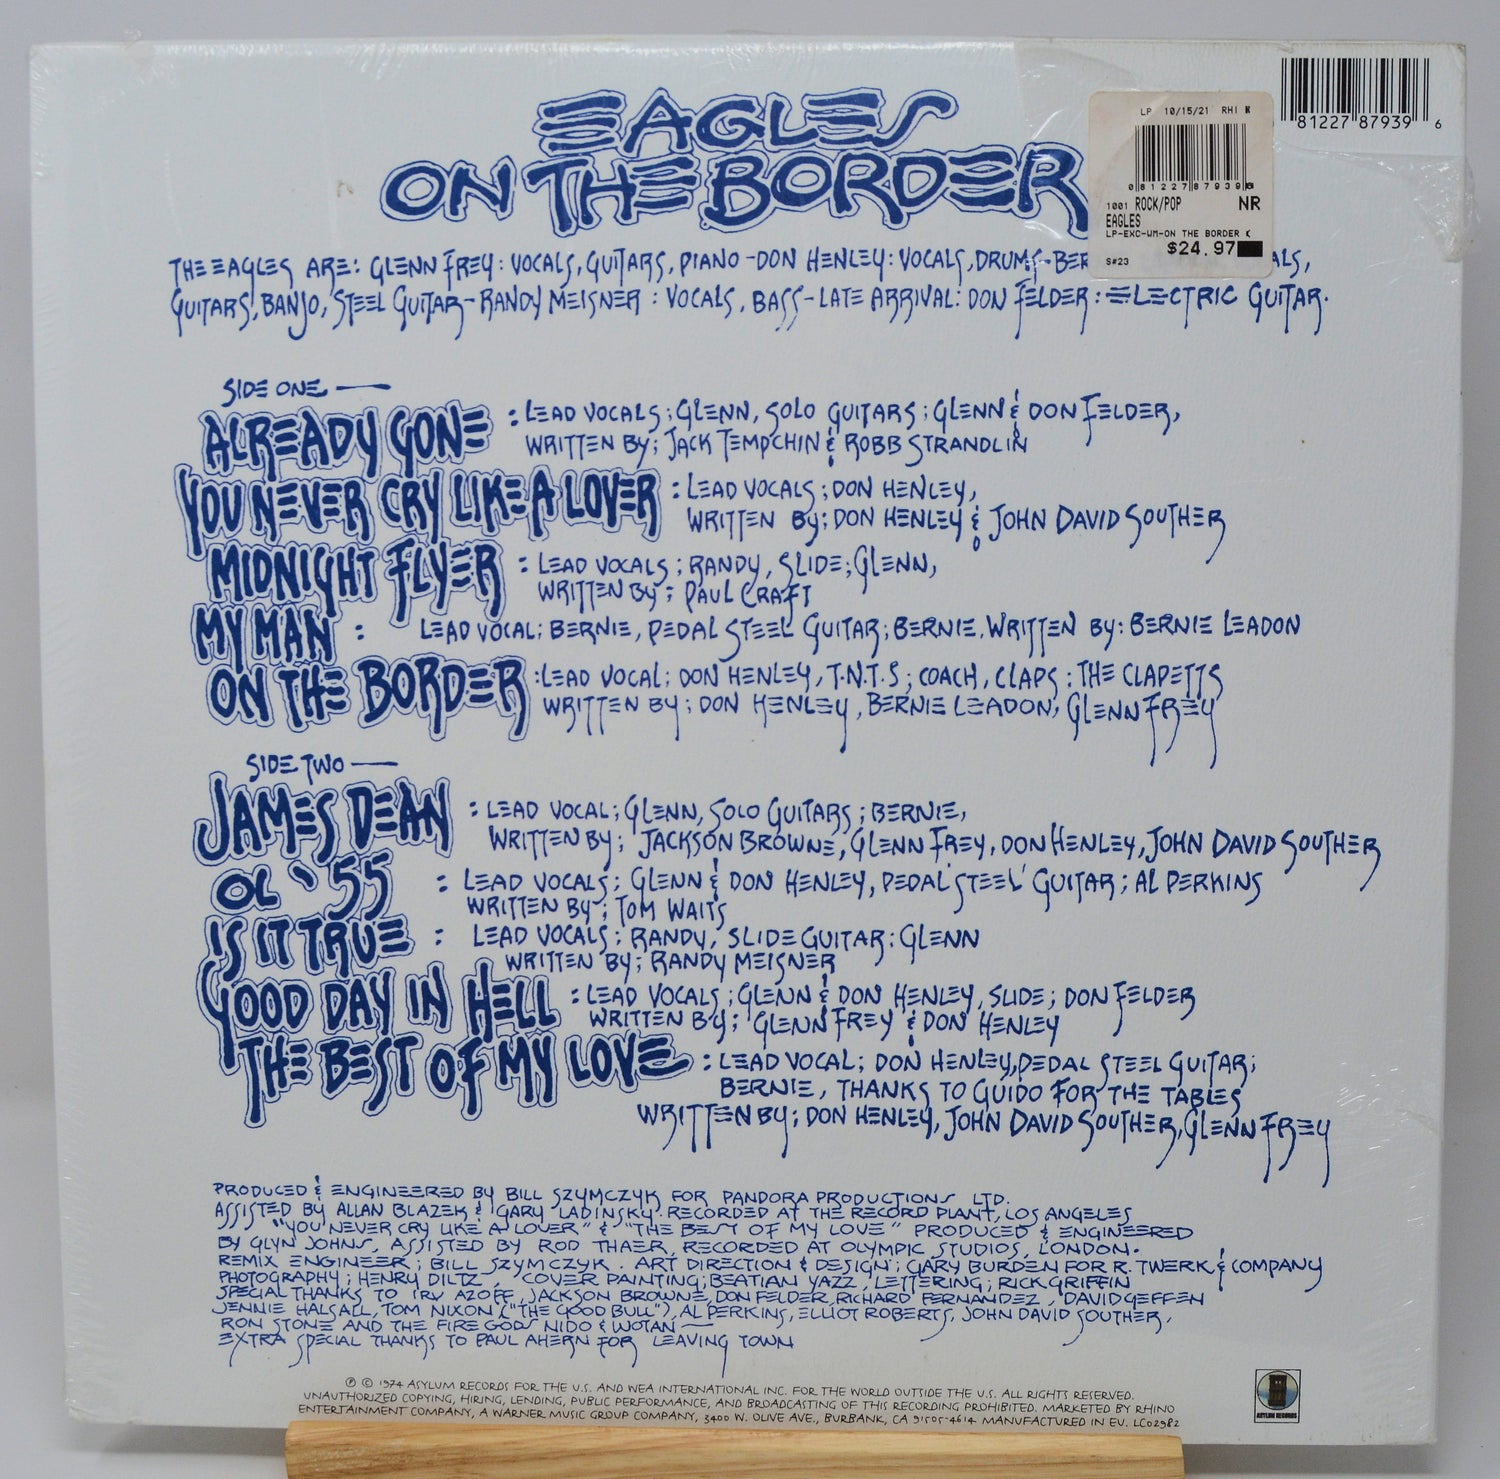 EAGLES
ON THE BORDER
81227 87939 6
LP 10/15/21 RHI K
0 81227 87939
1001 ROCK/POP NR
EAGLES
LP-EXC-WM-ON THE BORDER K
$24.97
S#23
THE EAGLES ARE: GLENN FREY: VOCALS, GUITARS, PIANO - DON HENLEY: VOCALS, DRUMS - BER ALS,
GUITARS, BANJO, STEEL GUITAR - RANDY MEISNER: VOCALS, BASS - LATE ARRIVAL: DON FELDER: ELECTRIC GUITAR.
SIDE ONE —
ALREADY GONE : LEAD VOCALS; GLENN, SOLO GUITARS; GLENN & DON FELDER,
WRITTEN BY; JACK TEMPCHIN & ROBB STRANDLIN
YOU NEVER CRY LIKE A LOVER : LEAD VOCALS; DON HENLEY,
WRITTEN BY; DON HENLEY & JOHN DAVID SOUTHER
MIDNIGHT FLYER : LEAD VOCALS; RANDY, SLIDE; GLENN,
WRITTEN BY; PAUL CRAFT
MY MAN : LEAD VOCAL; BERNIE, PEDAL STEEL GUITAR; BERNIE, WRITTEN BY: BERNIE LEADON
ON THE BORDER : LEAD VOCAL; DON HENLEY, T.N.T.S; COACH, CLAPS: THE CLAPETTS
WRITTEN BY; DON HENLEY, BERNIE LEADON, GLENN FREY
SIDE TWO —
JAMES DEAN : LEAD VOCAL; GLENN, SOLO GUITARS; BERNIE,
WRITTEN BY; JACKSON BROWNE, GLENN FREY, DON HENLEY, JOHN DAVID SOUTHER
OL '55 : LEAD VOCALS; GLENN & DON HENLEY, PEDAL STEEL GUITAR; AL PERKINS
WRITTEN BY; TOM WAITS
IS IT TRUE : LEAD VOCALS; RANDY, SLIDE GUITAR: GLENN
WRITTEN BY; RANDY MEISNER
GOOD DAY IN HELL : LEAD VOCALS; GLENN & DON HENLEY, SLIDE; DON FELDER
WRITTEN BY; GLENN FREY & DON HENLEY
THE BEST OF MY LOVE : LEAD VOCAL; DON HENLEY, PEDAL STEEL GUITAR;
BERNIE, THANKS TO GUIDO FOR THE TABLES
WRITTEN BY; DON HENLEY, JOHN DAVID SOUTHER, GLENN FREY
PRODUCED & ENGINEERED BY BILL SZYMCZYK FOR PANDORA PRODUCTIONS LTD.
ASSISTED BY ALLAN BLAZEK & GARY LADINSKY. RECORDED AT THE RECORD PLANT, LOS ANGELES
"YOU NEVER CRY LIKE A LOVER" & "THE BEST OF MY LOVE" PRODUCED & ENGINEERED
BY GLYN JOHNS, ASSISTED BY ROD THAER, RECORDED AT OLYMPIC STUDIOS, LONDON.
REMIX ENGINEER; BILL SZYMCZYK. ART DIRECTION & DESIGN; GARY BURDEN FOR R. TWERK & COMPANY
PHOTOGRAPHY; HENRY DILTZ, COVER PAINTING; BEATIAN YAZZ, LETTERING; RICK GRIFFIN
SPECIAL THANKS TO IRV AZOFF, JACKSON BROWNE, DON FELDER, RICHARD FERNANDEZ, DAVID GEFFEN
JENNIE HALSALL, TOM NIXON ("THE GOOD BULL"), AL PERKINS, ELLIOT ROBERTS, JOHN DAVID SOUTHER,
RON STONE AND THE FIRE GODS NIDO & WOTAN —
EXTRA SPECIAL THANKS TO PAUL AHERN FOR LEAVING TOWN
℗ © 1974 ASYLUM RECORDS FOR THE U.S. AND WEA INTERNATIONAL INC. FOR THE WORLD OUTSIDE THE U.S. ALL RIGHTS RESERVED.
UNAUTHORIZED COPYING, HIRING, LENDING, PUBLIC PERFORMANCE, AND BROADCASTING OF THIS RECORDING PROHIBITED. MARKETED BY RHINO
ENTERTAINMENT COMPANY, A WARNER MUSIC GROUP COMPANY, 3400 W. OLIVE AVE., BURBANK, CA 91505-4614 MANUFACTURED IN EU. LC02982
ASYLUM RECORDS